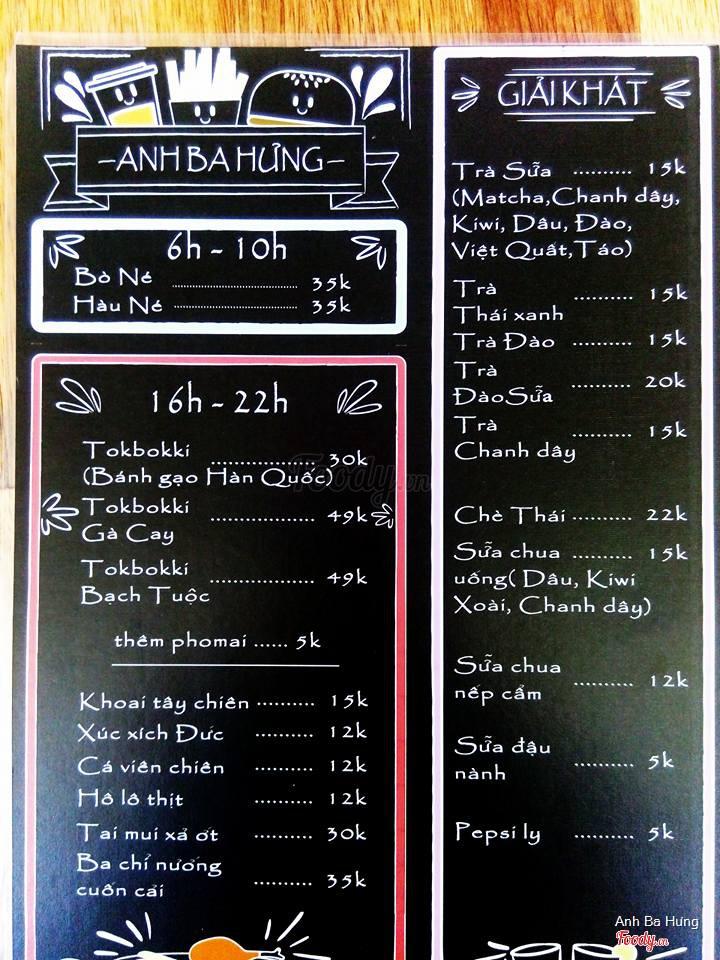 ANH BA HƯNG
6h - 10h
Bò Né ........ 35k
Hàu Né ........ 35k
16h - 22h
Tokbokki ........ 30k
(Bánh gạo Hàn Quốc)
Tokbokki ........ 49k
Gà Cay
Tokbokki ........ 49k
Bạch Tuộc
thêm phomai ...... 5k
Khoai tây chiên .......... 15k
Xúc xích Đưc .......... 12k
Cá viên chiên .......... 12k
Hô lô thịt .......... 12k
Tai mui xả ơt .......... 30k
Ba chỉ nướng
cuốn cải .......... 35k
GIẢI KHÁT
Trà Sữa .......... 15k
(Matcha,Chanh dây,
Kiwi, Dâu, Đào,
Việt Quất,Táo)
Trà .......... 15k
Thái xanh
Trà Đào .......... 15k
Trà .......... 20k
ĐàoSữa
Trà .......... 15k
Chanh dây
Chè Thái .......... 22k
Sữa chua .......... 15k
uống( Dâu, Kiwi
Xoài, Chanh dây)
Sữa chua .......... 12k
nếp cẩm
Sữa đậu .......... 5k
nành
Pepsi ly .......... 5k
Foody.vn
Anh Ba Hưng
Foody.vn